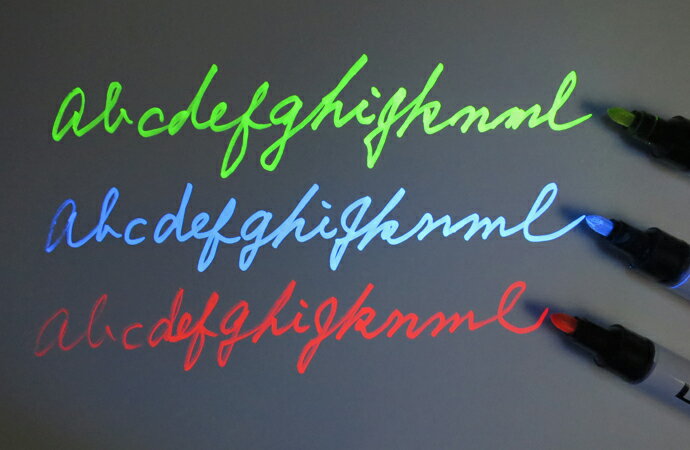 abcdefghijknml
abcdefghijknml
abcdefghijknml